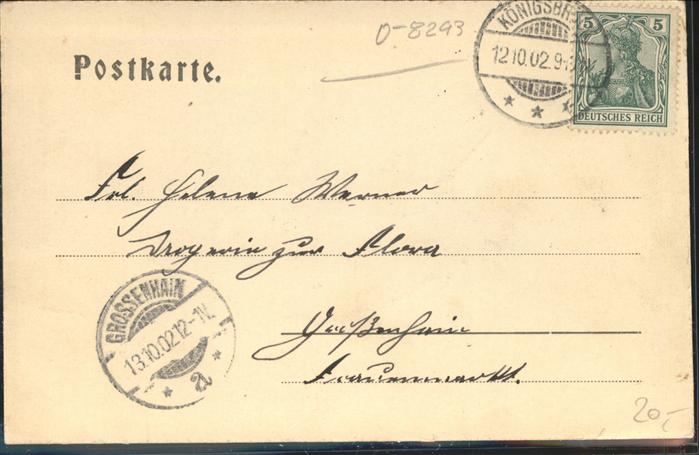 D-8293
KÖNIGSBR
12.10.02.9-
5 5
DEUTSCHES REICH
Postkarte.
Frl. Helene Werner
Drogerie zur Flora
GROSSENHAIN
13.10.02.12-1N.
a
Großenhain
Frauenmarkt.
20,-